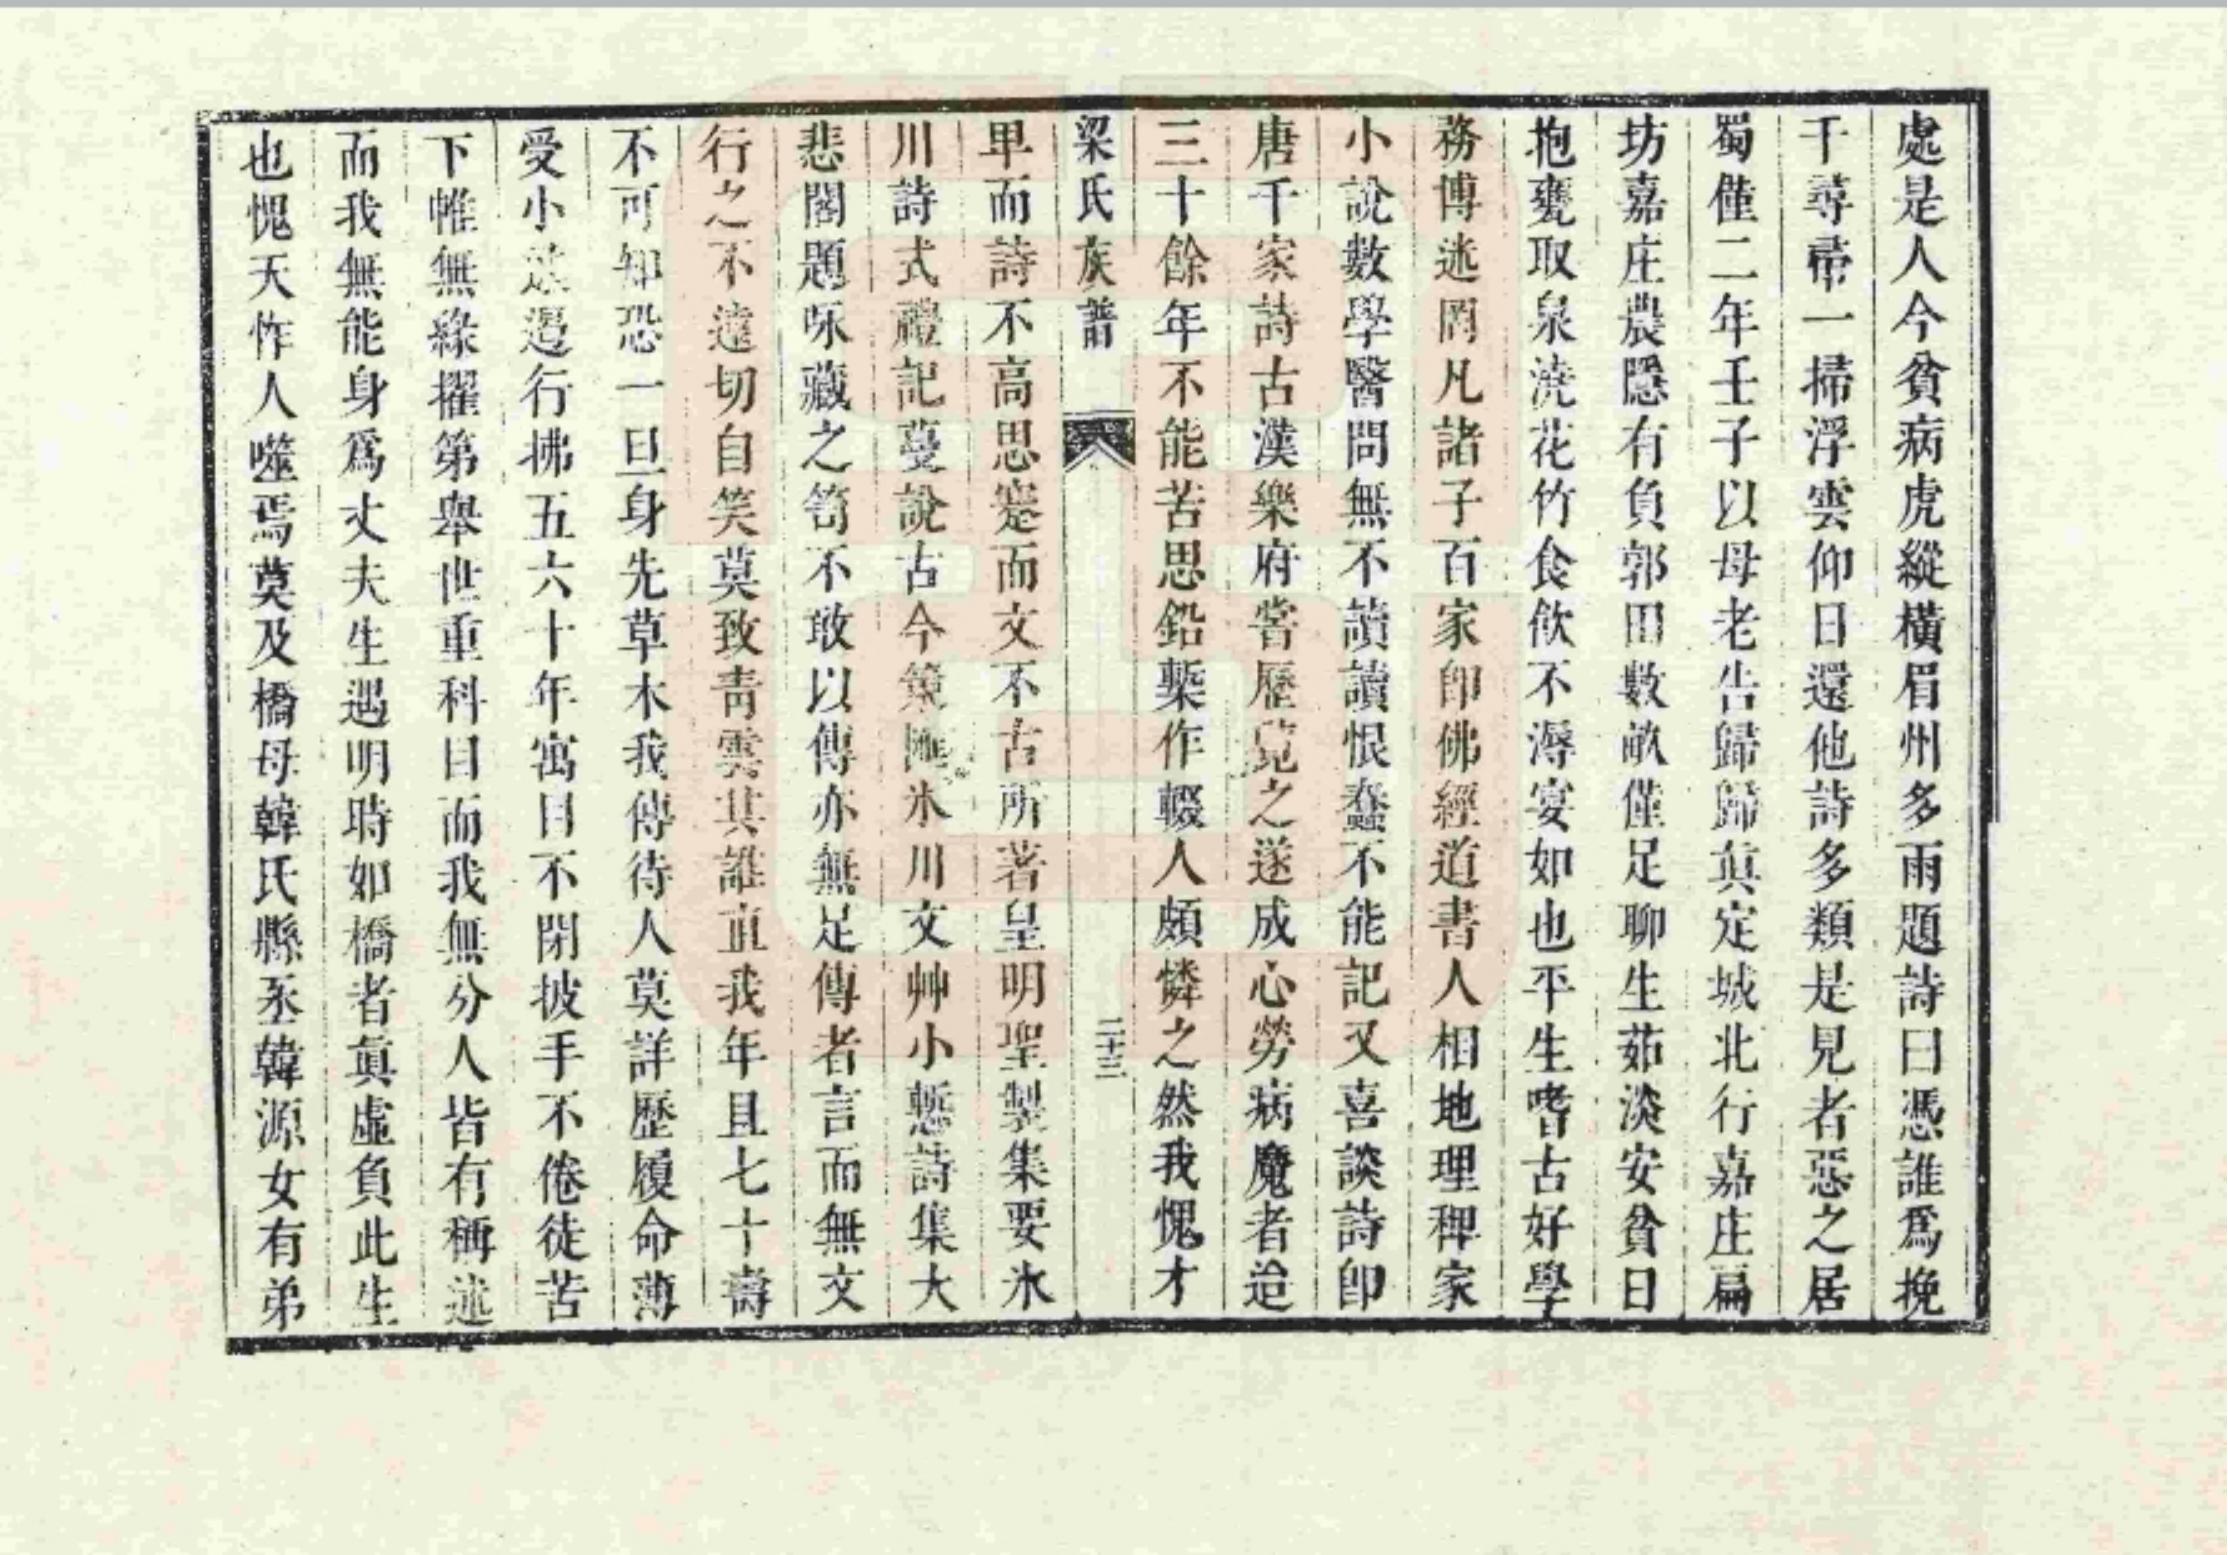 處是人今貧病虎縱橫眉州多雨題詩曰憑誰爲挽
千尋帚一掃浮雲仰日還他詩多類是見者惡之居
蜀僅二年壬子以母老告歸歸眞定城北行嘉庄扁
坊嘉庄農隱有負郭田數畝僅足聊生茹淡安貧日
抱甕取泉澆花竹食飲不溽宴如也平生嗜古好學
務博迷罔凡諸子百家卽佛經道書人相地理稗家
小說數學醫問無不讀讀恨蠢不能記又喜談詩卽
唐千家詩古漢樂府嘗歷覓之遂成心勞病魔者迨
三十餘年不能苦思鉛槧作輟人頗憐之然我愧才
梁氏族譜 二十三
卑而詩不高思蹇而文不古所著皇明聖製集要氷
川詩式禮記蔓說古今策匯氷川文艸小慙詩集大
悲閣題咏藏之笥不敢以傳亦無足傳者言而無文
行之不遠切自笑莫致靑雲其誰直我年且七十壽
不可知恐一旦身先草木我傳待人莫詳歷履命薄
受小 邅行拂五六十年寓目不閉披手不倦徒苦
下帷無緣擢第舉世重科目而我無分人皆有稱述
而我無能身爲丈夫生遇明時如橋者眞虛負此生
也愧天怍人噬焉莫及橋母韓氏縣丞韓源女有弟